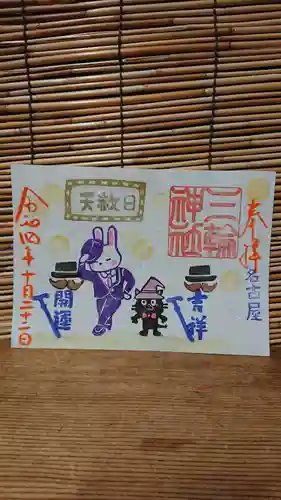 奉拝
名古屋
三輪
神社
天赦日
吉祥
開運
令和四年十月二十二日